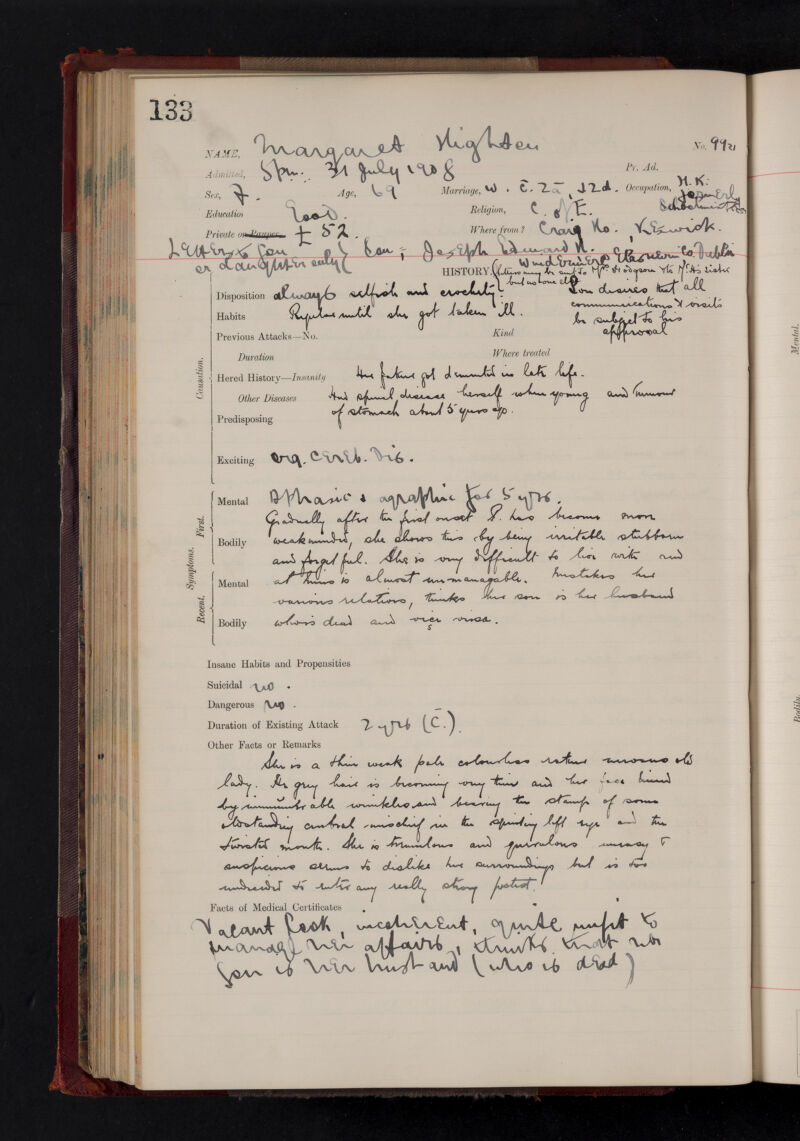 133
NAME, Margaret Highten No. 992
Admitted, 5 p.m. 31 July 1908 Pr. Ad.
Sex, F. Age, 69 Marriage, W. C. 2 , 12d. Occupation, H.K. formerly
Education Good. Religion, C. of E. Schoolmistress
Private or Pauper £52. Where from? Craig Ho., Keswick.
Letters to son Son, Joseph Edward H.
or daughter only Windermere Co. Dublin
HISTORY (letters may be sent to Mrs Hodgson Mr H's sister
but no one else)
Disposition always selfish and crochety. Son desires that all
Habits Regular until she got taken ill. communications & visits
be subject to his
Previous Attacks—No. Kind approval
Duration Where treated
Causation.
Hered History—Insanity Her father got demented in late life.
Other Diseases Had spinal disease herself when young and tumour
Predisposing of stomach about 5 years ago.
Exciting org. cereb. Dis.
Symptoms.
First.
Mental Aphasic & agraphic for 5 yrs.
Gradually after the first onset P. has become more
Bodily weakminded, she shows this by being irritable stubborn
and forgetful. She is very difficult to live with and
Recent.
Mental at times is almost unmanagable. Mistakes her
various relations, thinks her son is her husband
Bodily who is dead and vice versa.
Insane Habits and Propensities
Suicidal no.
Dangerous no.
Duration of Existing Attack 2 yrs (C.).
Other Facts or Remarks
She is a thin weak pale colourless rather nervous old
lady. Her grey hair is becoming very thin and her face lined
by innumerable wrinkles and bearing the stamp of some
oldstanding central mischief in the squinting left eye and the
twisted mouth. She is tremulous and querulous uneasy &
suspicious seems to dislike her surroundings but is too
undecided to enter any really strong protest.
Facts of Medical Certificates
Vacant look, incoherent, quite unfit to
manage her affairs, thinks that her
son is her husband (who is dead)
Mental.
Bodily.